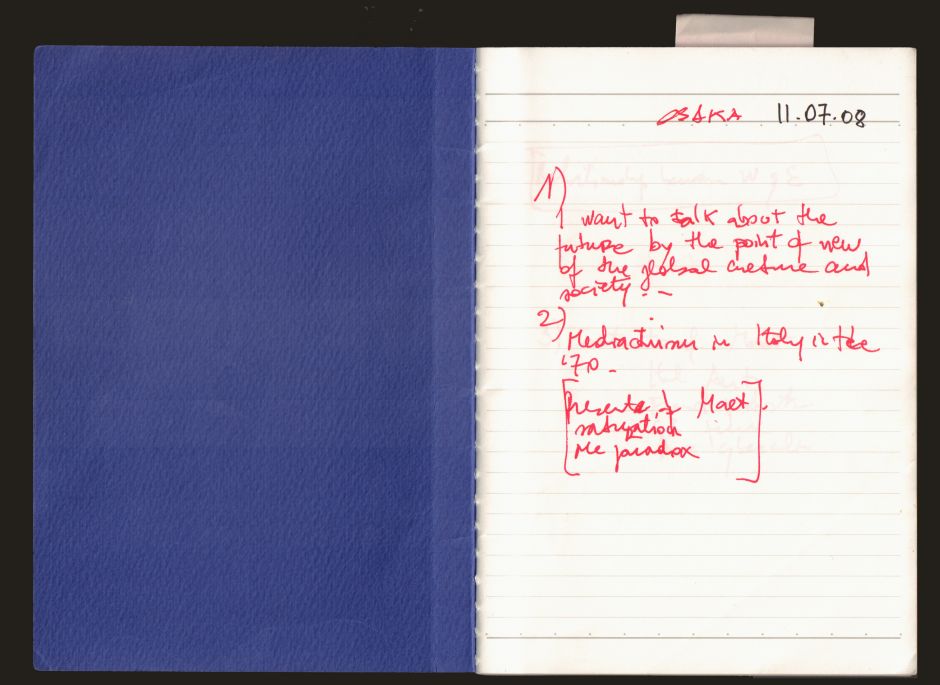 OSAKA 11.07.08
1)
I want to talk about the
future by the point of view
of the global culture and
society. –
2)
Mediactivism in Italy in the
'70 –
satyration
the paradox